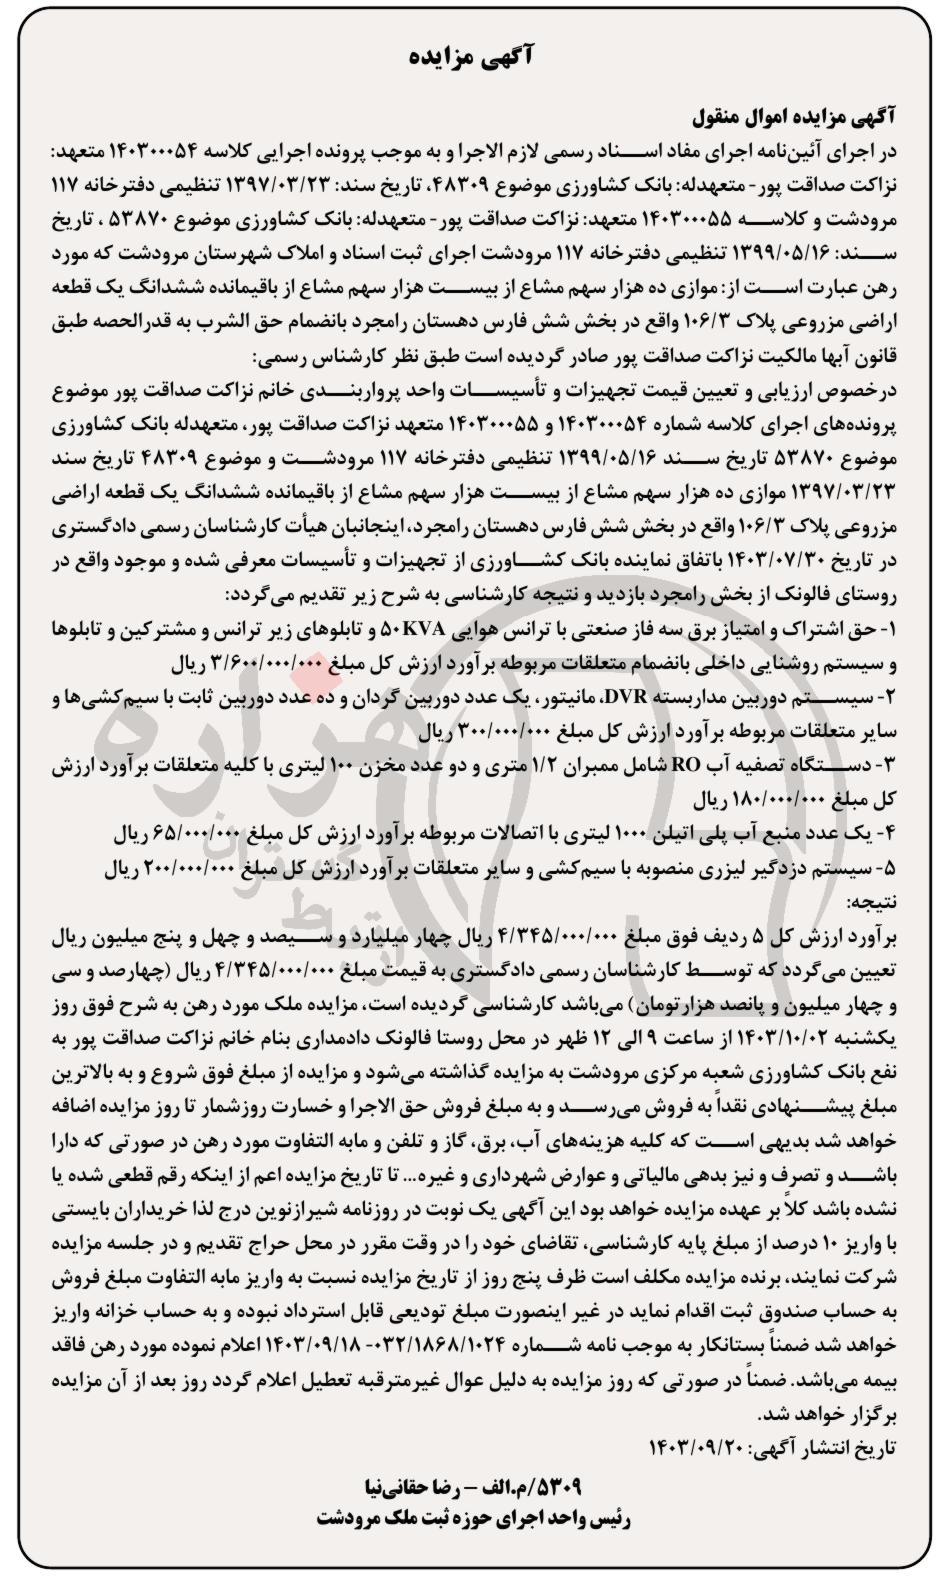 آگهی مزایده
آگهی مزایده اموال منقول
در اجرای آئین‌نامه اجرای مفاد اسناد رسمی لازم الاجرا و به موجب پرونده اجرایی کلاسه ۱۴۰۳۰۰۰۵۴ متعهد:
نزاکت صداقت پور- متعهدله: بانک کشاورزی موضوع ۴۸۳۰۹، تاریخ سند: ۱۳۹۷/۰۳/۲۳ تنظیمی دفترخانه ۱۱۷
مرودشت و کلاسه ۱۴۰۳۰۰۰۵۵ متعهد: نزاکت صداقت پور- متعهدله: بانک کشاورزی موضوع ۵۳۸۷۰ ، تاریخ
سند: ۱۳۹۹/۰۵/۱۶ تنظیمی دفترخانه ۱۱۷ مرودشت اجرای ثبت اسناد و املاک شهرستان مرودشت که مورد
رهن عبارت است از: موازی ده هزار سهم مشاع از بیست هزار سهم مشاع از باقیمانده ششدانگ یک قطعه
اراضی مزروعی پلاک ۱۰۶/۳ واقع در بخش شش فارس دهستان رامجرد بانضمام حق الشرب به قدرالحصه طبق
قانون آبها مالکیت نزاکت صداقت پور صادر گردیده است طبق نظر کارشناس رسمی:
درخصوص ارزیابی و تعیین قیمت تجهیزات و تأسیسات واحد پرواربندی خانم نزاکت صداقت پور موضوع
پرونده‌های اجرای کلاسه شماره ۱۴۰۳۰۰۰۵۴ و ۱۴۰۳۰۰۰۵۵ متعهد نزاکت صداقت پور، متعهدله بانک کشاورزی
موضوع ۵۳۸۷۰ تاریخ سند ۱۳۹۹/۰۵/۱۶ تنظیمی دفترخانه ۱۱۷ مرودشت و موضوع ۴۸۳۰۹ تاریخ سند
۱۳۹۷/۰۳/۲۳ موازی ده هزار سهم مشاع از بیست هزار سهم مشاع از باقیمانده ششدانگ یک قطعه اراضی
مزروعی پلاک ۱۰۶/۳ واقع در بخش شش فارس دهستان رامجرد، اینجانبان هیأت کارشناسان رسمی دادگستری
در تاریخ ۱۴۰۳/۰۷/۳۰ باتفاق نماینده بانک کشاورزی از تجهیزات و تأسیسات معرفی شده و موجود واقع در
روستای فالونک از بخش رامجرد بازدید و نتیجه کارشناسی به شرح زیر تقدیم می‌گردد:
۱- حق اشتراک و امتیاز برق سه فاز صنعتی با ترانس هوایی ۵۰KVA و تابلوهای زیر ترانس و مشترکین و تابلوها
و سیستم روشنایی داخلی بانضمام متعلقات مربوطه برآورد ارزش کل مبلغ ۳/۶۰۰/۰۰۰/۰۰۰ ریال
۲- سیستم دوربین مداربسته DVR، مانیتور، یک عدد دوربین گردان و ده عدد دوربین ثابت با سیم‌کشی‌ها و
سایر متعلقات مربوطه برآورد ارزش کل مبلغ ۳۰۰/۰۰۰/۰۰۰ ریال
۳- دستگاه تصفیه آب RO شامل ممبران ۱/۲ متری و دو عدد مخزن ۱۰۰ لیتری با کلیه متعلقات برآورد ارزش
کل مبلغ ۱۸۰/۰۰۰/۰۰۰ ریال
۴- یک عدد منبع آب پلی اتیلن ۱۰۰۰ لیتری با اتصالات مربوطه برآورد ارزش کل مبلغ ۶۵/۰۰۰/۰۰۰ ریال
۵- سیستم دزدگیر لیزری منصوبه با سیم‌کشی و سایر متعلقات برآورد ارزش کل مبلغ ۲۰۰/۰۰۰/۰۰۰ ریال
نتیجه:
برآورد ارزش کل ۵ ردیف فوق مبلغ ۴/۳۴۵/۰۰۰/۰۰۰ ریال چهار میلیارد و سیصد و چهل و پنج میلیون ریال
تعیین می‌گردد که توسط کارشناسان رسمی دادگستری به قیمت مبلغ ۴/۳۴۵/۰۰۰/۰۰۰ ریال (چهارصد و سی
و چهار میلیون و پانصد هزارتومان) می‌باشد کارشناسی گردیده است، مزایده ملک مورد رهن به شرح فوق روز
یکشنبه ۱۴۰۳/۱۰/۰۲ از ساعت ۹ الی ۱۲ ظهر در محل روستا فالونک دادمداری بنام خانم نزاکت صداقت پور به
نفع بانک کشاورزی شعبه مرکزی مرودشت به مزایده گذاشته می‌شود و مزایده از مبلغ فوق شروع و به بالاترین
مبلغ پیشنهادی نقداً به فروش می‌رسد و به مبلغ فروش حق الاجرا و خسارت روزشمار تا روز مزایده اضافه
خواهد شد بدیهی است که کلیه هزینه‌های آب، برق، گاز و تلفن و مابه التفاوت مورد رهن در صورتی که دارا
باشد و تصرف و نیز بدهی مالیاتی و عوارض شهرداری و غیره... تا تاریخ مزایده اعم از اینکه رقم قطعی شده یا
نشده باشد کلاً بر عهده مزایده خواهد بود این آگهی یک نوبت در روزنامه شیرازنوین درج لذا خریداران بایستی
با واریز ۱۰ درصد از مبلغ پایه کارشناسی، تقاضای خود را در وقت مقرر در محل حراج تقدیم و در جلسه مزایده
شرکت نمایند، برنده مزایده مکلف است ظرف پنج روز از تاریخ مزایده نسبت به واریز مابه التفاوت مبلغ فروش
به حساب صندوق ثبت اقدام نماید در غیر اینصورت مبلغ تودیعی قابل استرداد نبوده و به حساب خزانه واریز
خواهد شد ضمناً بستانکار به موجب نامه شماره ۰۳۲/۱۸۶۸/۱۰۲۴- ۱۴۰۳/۰۹/۱۸ اعلام نموده مورد رهن فاقد
بیمه می‌باشد. ضمناً در صورتی که روز مزایده به دلیل عوال غیرمترقبه تعطیل اعلام گردد روز بعد از آن مزایده
برگزار خواهد شد.
تاریخ انتشار آگهی: ۱۴۰۳/۰۹/۲۰
۵۳۰۹/م.الف – رضا حقانی‌نیا
رئیس واحد اجرای حوزه ثبت ملک مرودشت
هزاره
ارتباط
گستران